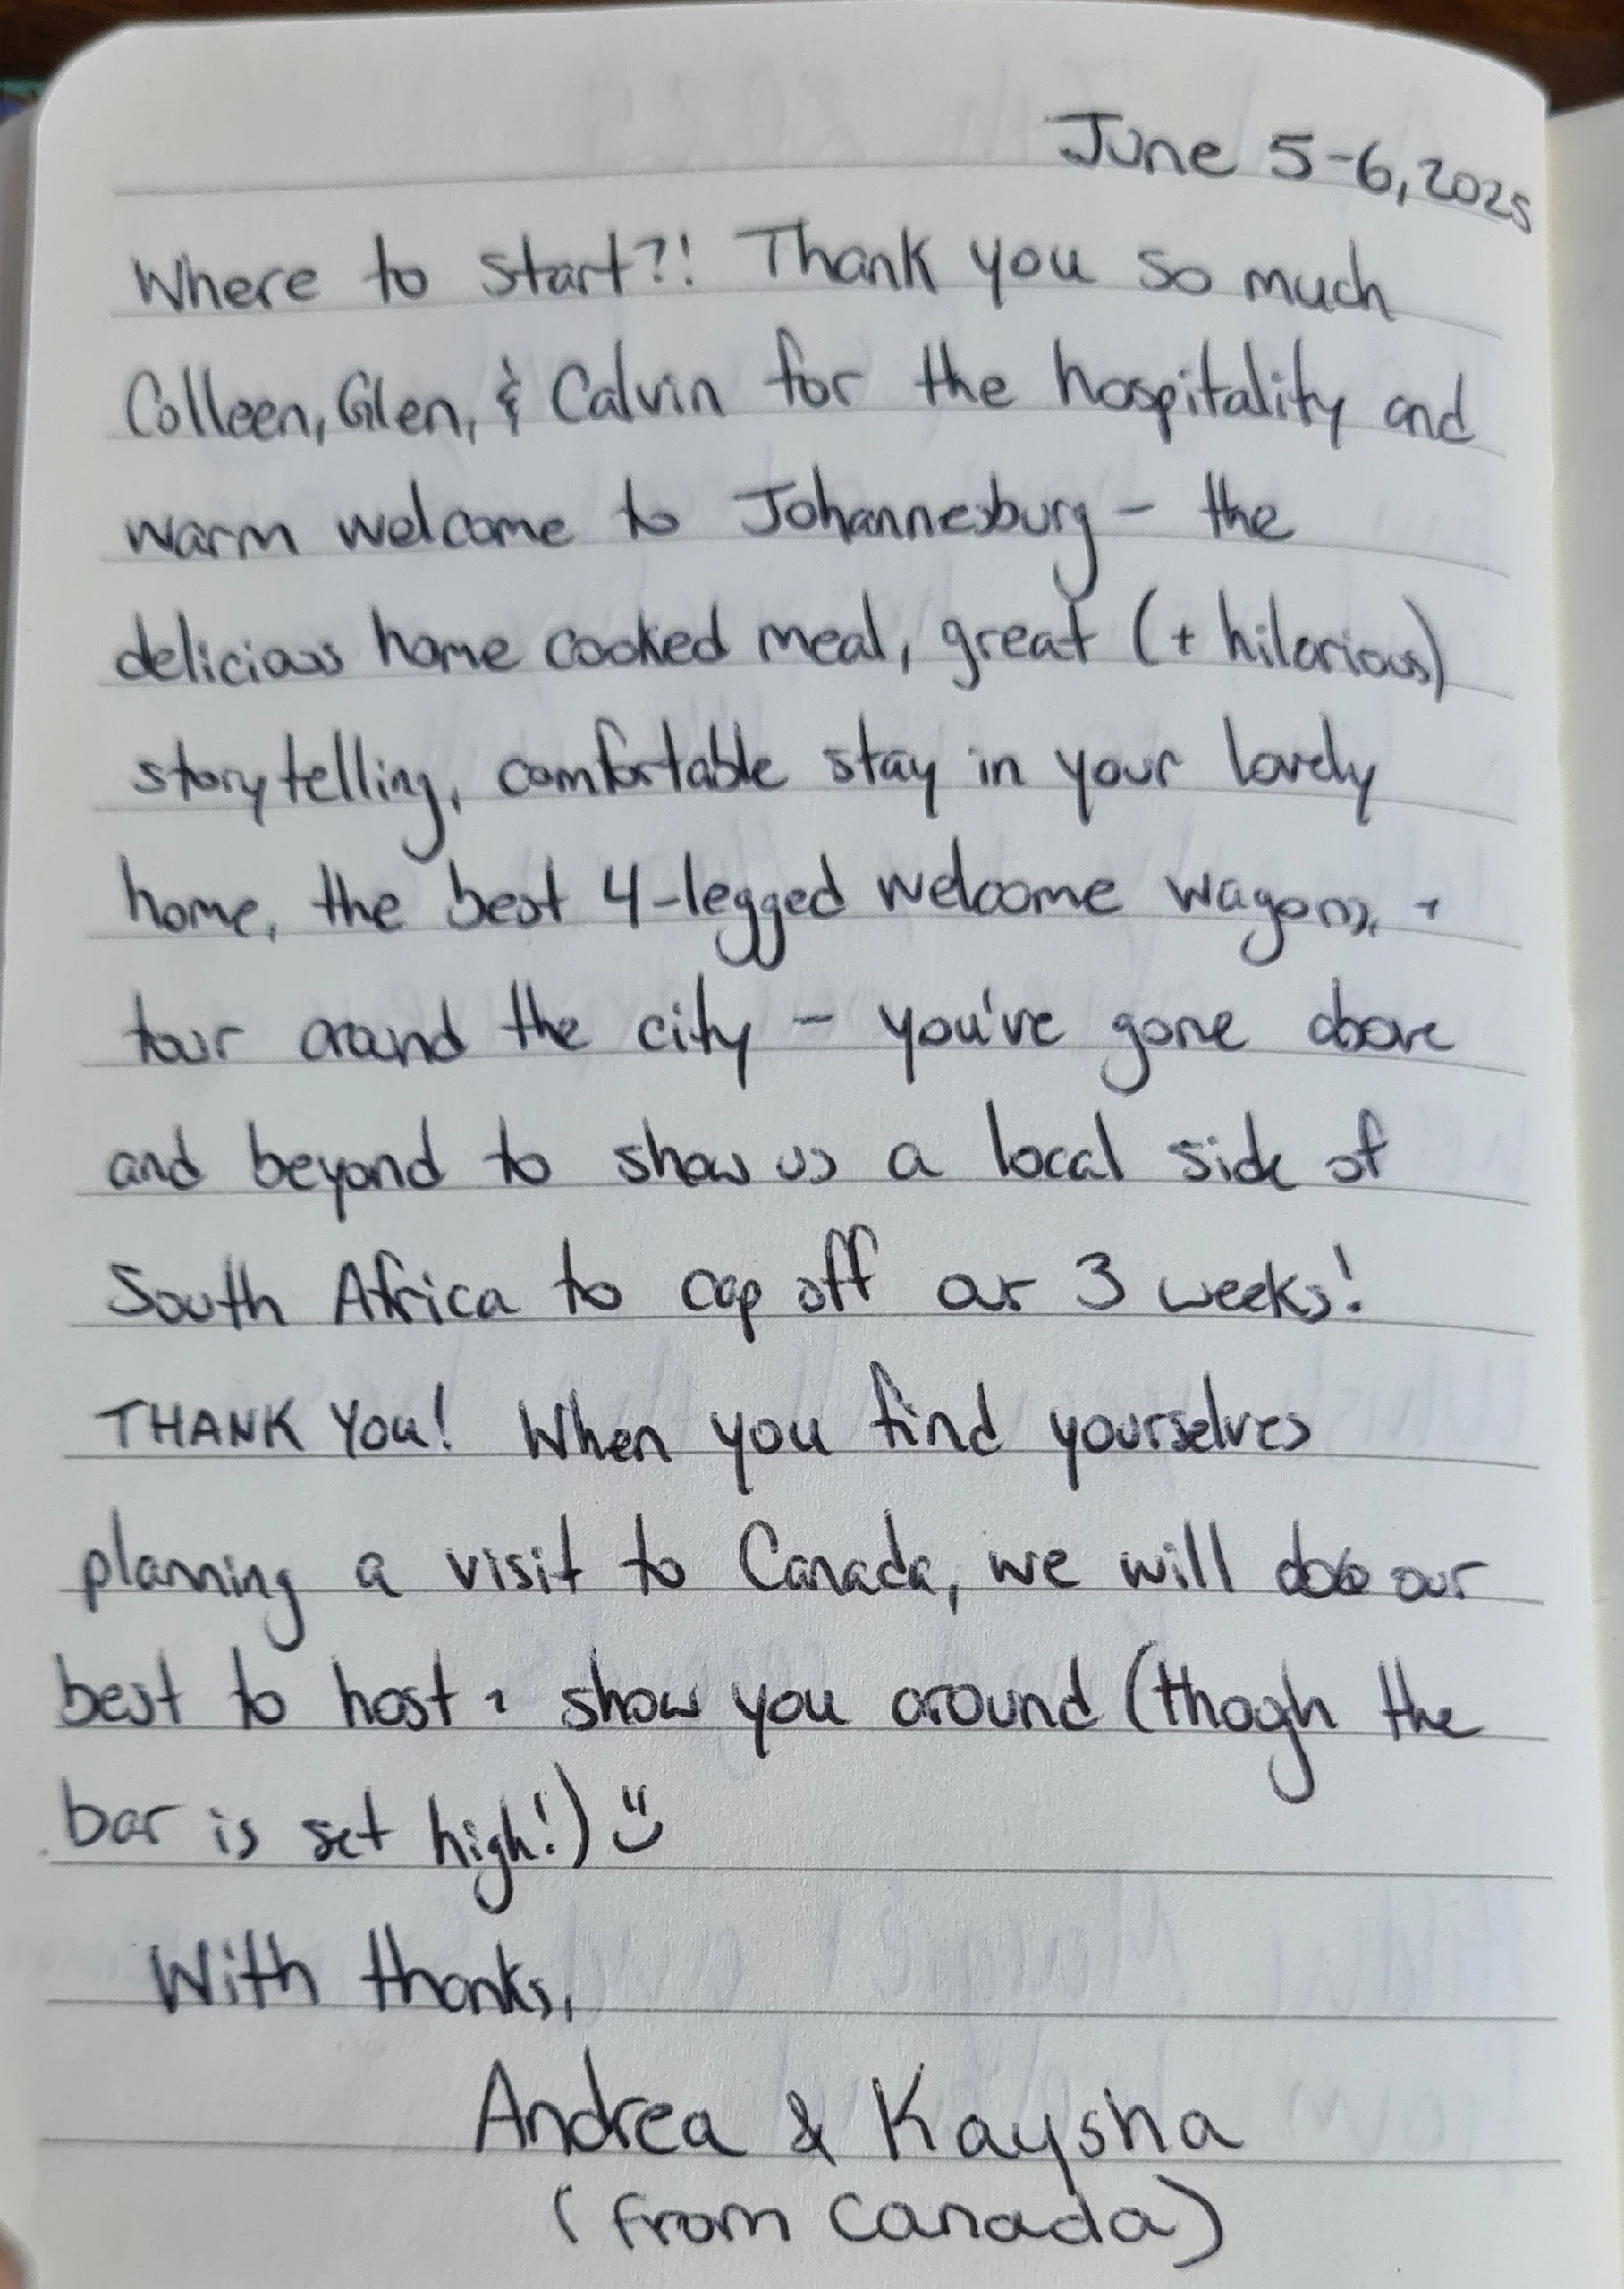 June 5-6, 2025
Where to start?! Thank you so much
Colleen, Glen, & Calvin for the hospitality and
warm welcome to Johannesburg - the
delicious home cooked meal, great (+ hilarious)
storytelling, comfortable stay in your lovely
home, the best 4-legged welcome wagons, +
tour around the city - you've gone above
and beyond to show us a local side of
South Africa to cap off our 3 weeks!
THANK YOU! When you find yourselves
planning a visit to Canada, we will do our
best to host + show you around (though the
bar is set high!) :)
With thanks,
Andrea & Kaysha
(from Canada)